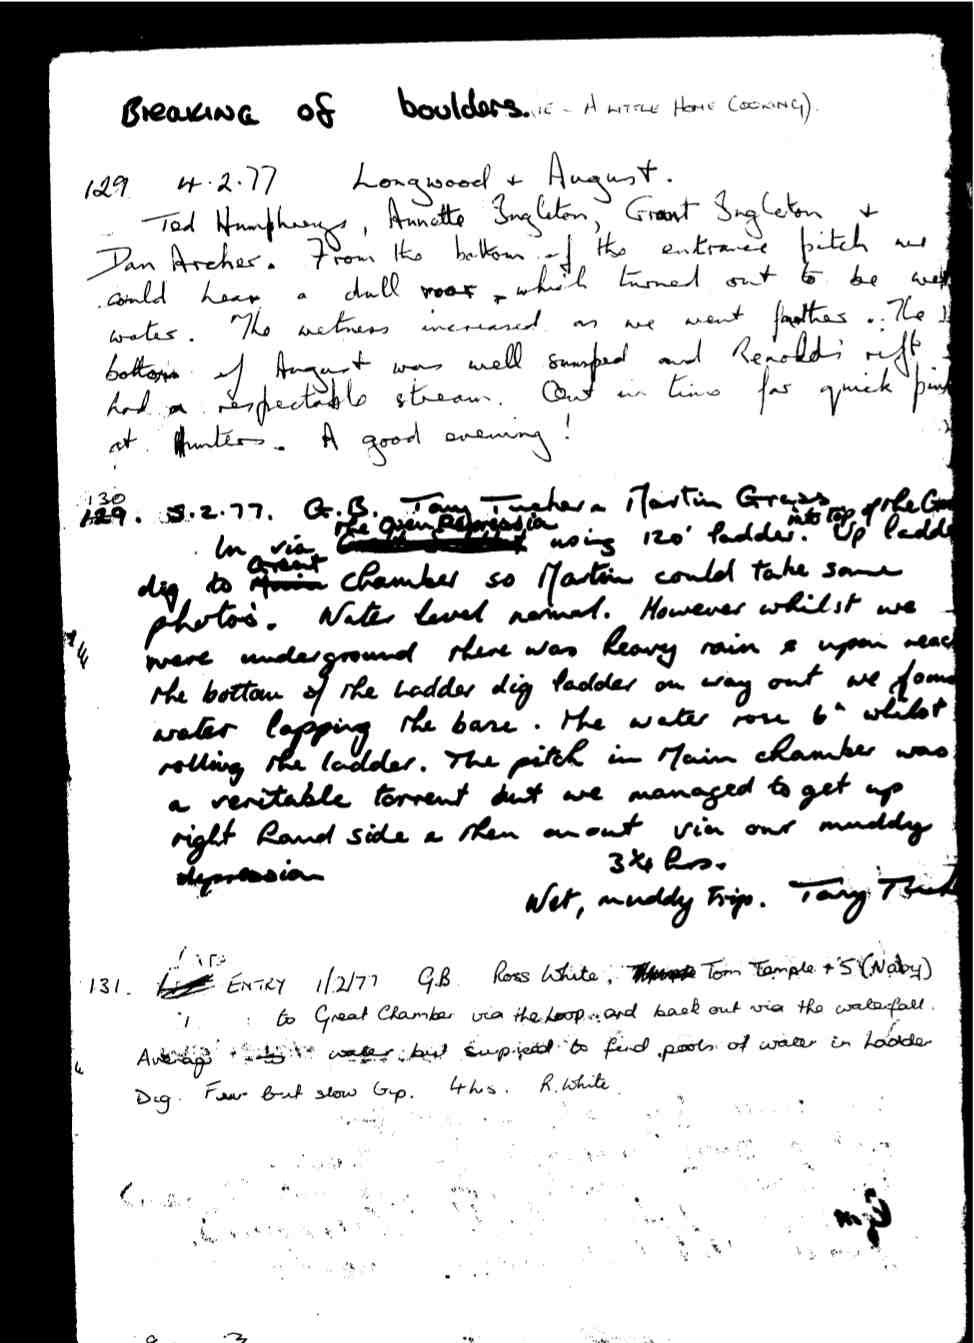 Breaking of boulders. (IE - A LITTLE HOME COOKING).
129 4.2.77 Longwood + August.
Ted Humphreys, Annette Ingleton, Grant Ingleton +
Dan Archer. From the bottom of the entrance pitch we
could hear a dull roar, which turned out to be
water. The wetness increased as we went further. The
bottom of August was well sumped and Renold's rift
had a respectable stream. Out in time for quick
at Hunters. A good evening!
130
129. 5.2.77. G.B. Tony Tucker Martin Grass
the Open Depression into top of the
In via using 120' ladder. Up
Great
dig to Main chamber so Martin could take some
photo's. Water level normal. However whilst we
were underground there was heavy rain & upon
the bottom of the Ladder dig ladder on way out we
water lapping the base. The water rose 6" whilst
rolling the ladder. The pitch in Main chamber was
a veritable torrent but we managed to get up
right hand side & then on out via our muddy
depression
3¾ hrs.
Wet, muddy trip. Tony
131. ENTRY 1/2/77 GB Ross White, Tom Temple + 5 (Navy)
to Great Chamber via the Loop and back out via the waterfall.
Average water but to find pools of water in Ladder
Dig. but slow trip. 4hrs. R. White.